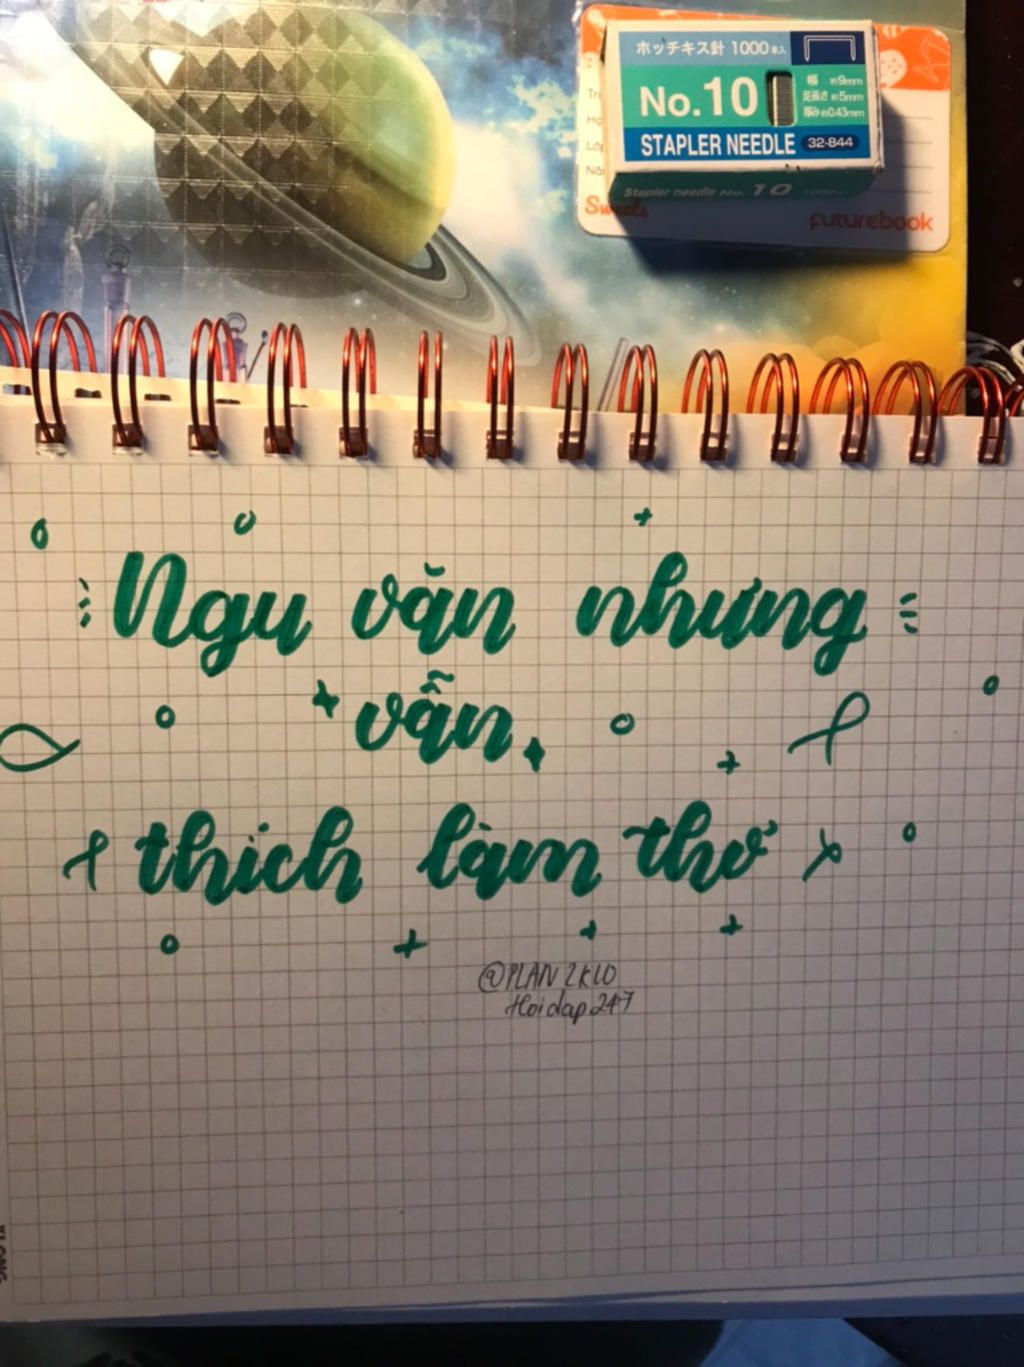 ホッチキス針 1000本入
No.10
幅 約9mm
足長さ 約5mm
厚み 約0.43mm
STAPLER NEEDLE 32-844
Stapler needle No. 10
Sweets
futurebook
Ngu văn nhưng
vẫn
thich làm thơ
@PLAN2KLO
Hoidap247
KLONG